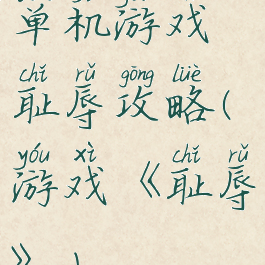 单机游戏
chǐ rǔ gōng lüè
耻辱攻略(
yóu xì chǐ rǔ
游戏《耻辱
》)